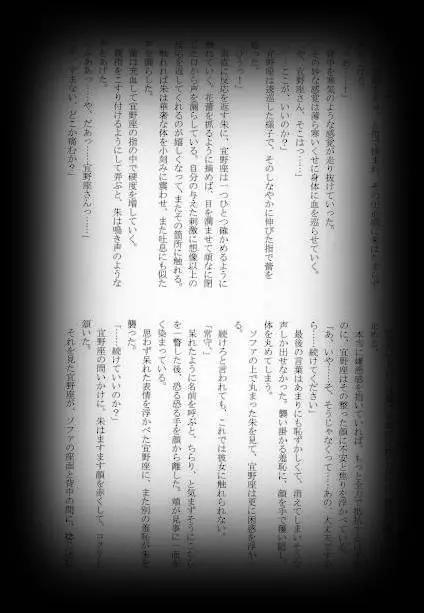 背中を寒気のような感覚が走り抜けていった。
その妙な感覚は薄ら寒いくせに身体に血を巡らせていく。
宜野座さん、そこはっ……」
ここが、いいのか？」
宜野座は逡巡した様子で、そのしなやかに伸びた指で蕾を
直に反応を返す朱に、宜野座は一つひとつ確かめるように
触れていく。花蕾を抓るように摘めば、目を潤ませて頑なに閉
口から声を漏らしている。自分の与えた刺激に想像以上の
反応を返してくれるのが嬉しくなって、またその箇所に触れる。
触れれば朱は華奢な体を小刻みに震わせ、また吐息にも似た
声を漏らした。
蕾は充血して宜野座の指の中で硬度を増していく。
親指をこすり付けるようにして弄ぶと、朱は鳴き声のような
をあげた。
ふあぁっ……や、だぁっ……宜野座さんっ……」
すまない、どこか痛むか？」
のに、宜野座はその整った顔に不安と焦りを浮かべている。
「あ、いや……そ、そうじゃなくって……あの、大丈夫ですか
ら……続けてください」
最後の言葉はあまりにも恥ずかしくて、消えてしまいそうな
声しか出せなかった。襲い掛かる羞恥に、顔を手で覆い隠し、
体を丸めてしまう。
ソファの上で丸まった朱を見て、宜野座は更に困惑を浮か
る。
続けろと言われても、これでは彼女に触れられない。
「常守。」
呆れたように名前を呼ぶと、ちらり、と気まずそうにこちら
を一瞥した後、恐る恐る手を顔から離した。頬が見事に一面赤
く染まっている。
思わず呆れた表情を浮かべた宜野座に、また別の羞恥が朱を
襲った。
「……続けていいのか？」
宜野座の問いかけに、朱はますます顔を赤くして、コクリと
頷いた。
それを見た宜野座が、ソファの座面と背中の間に、